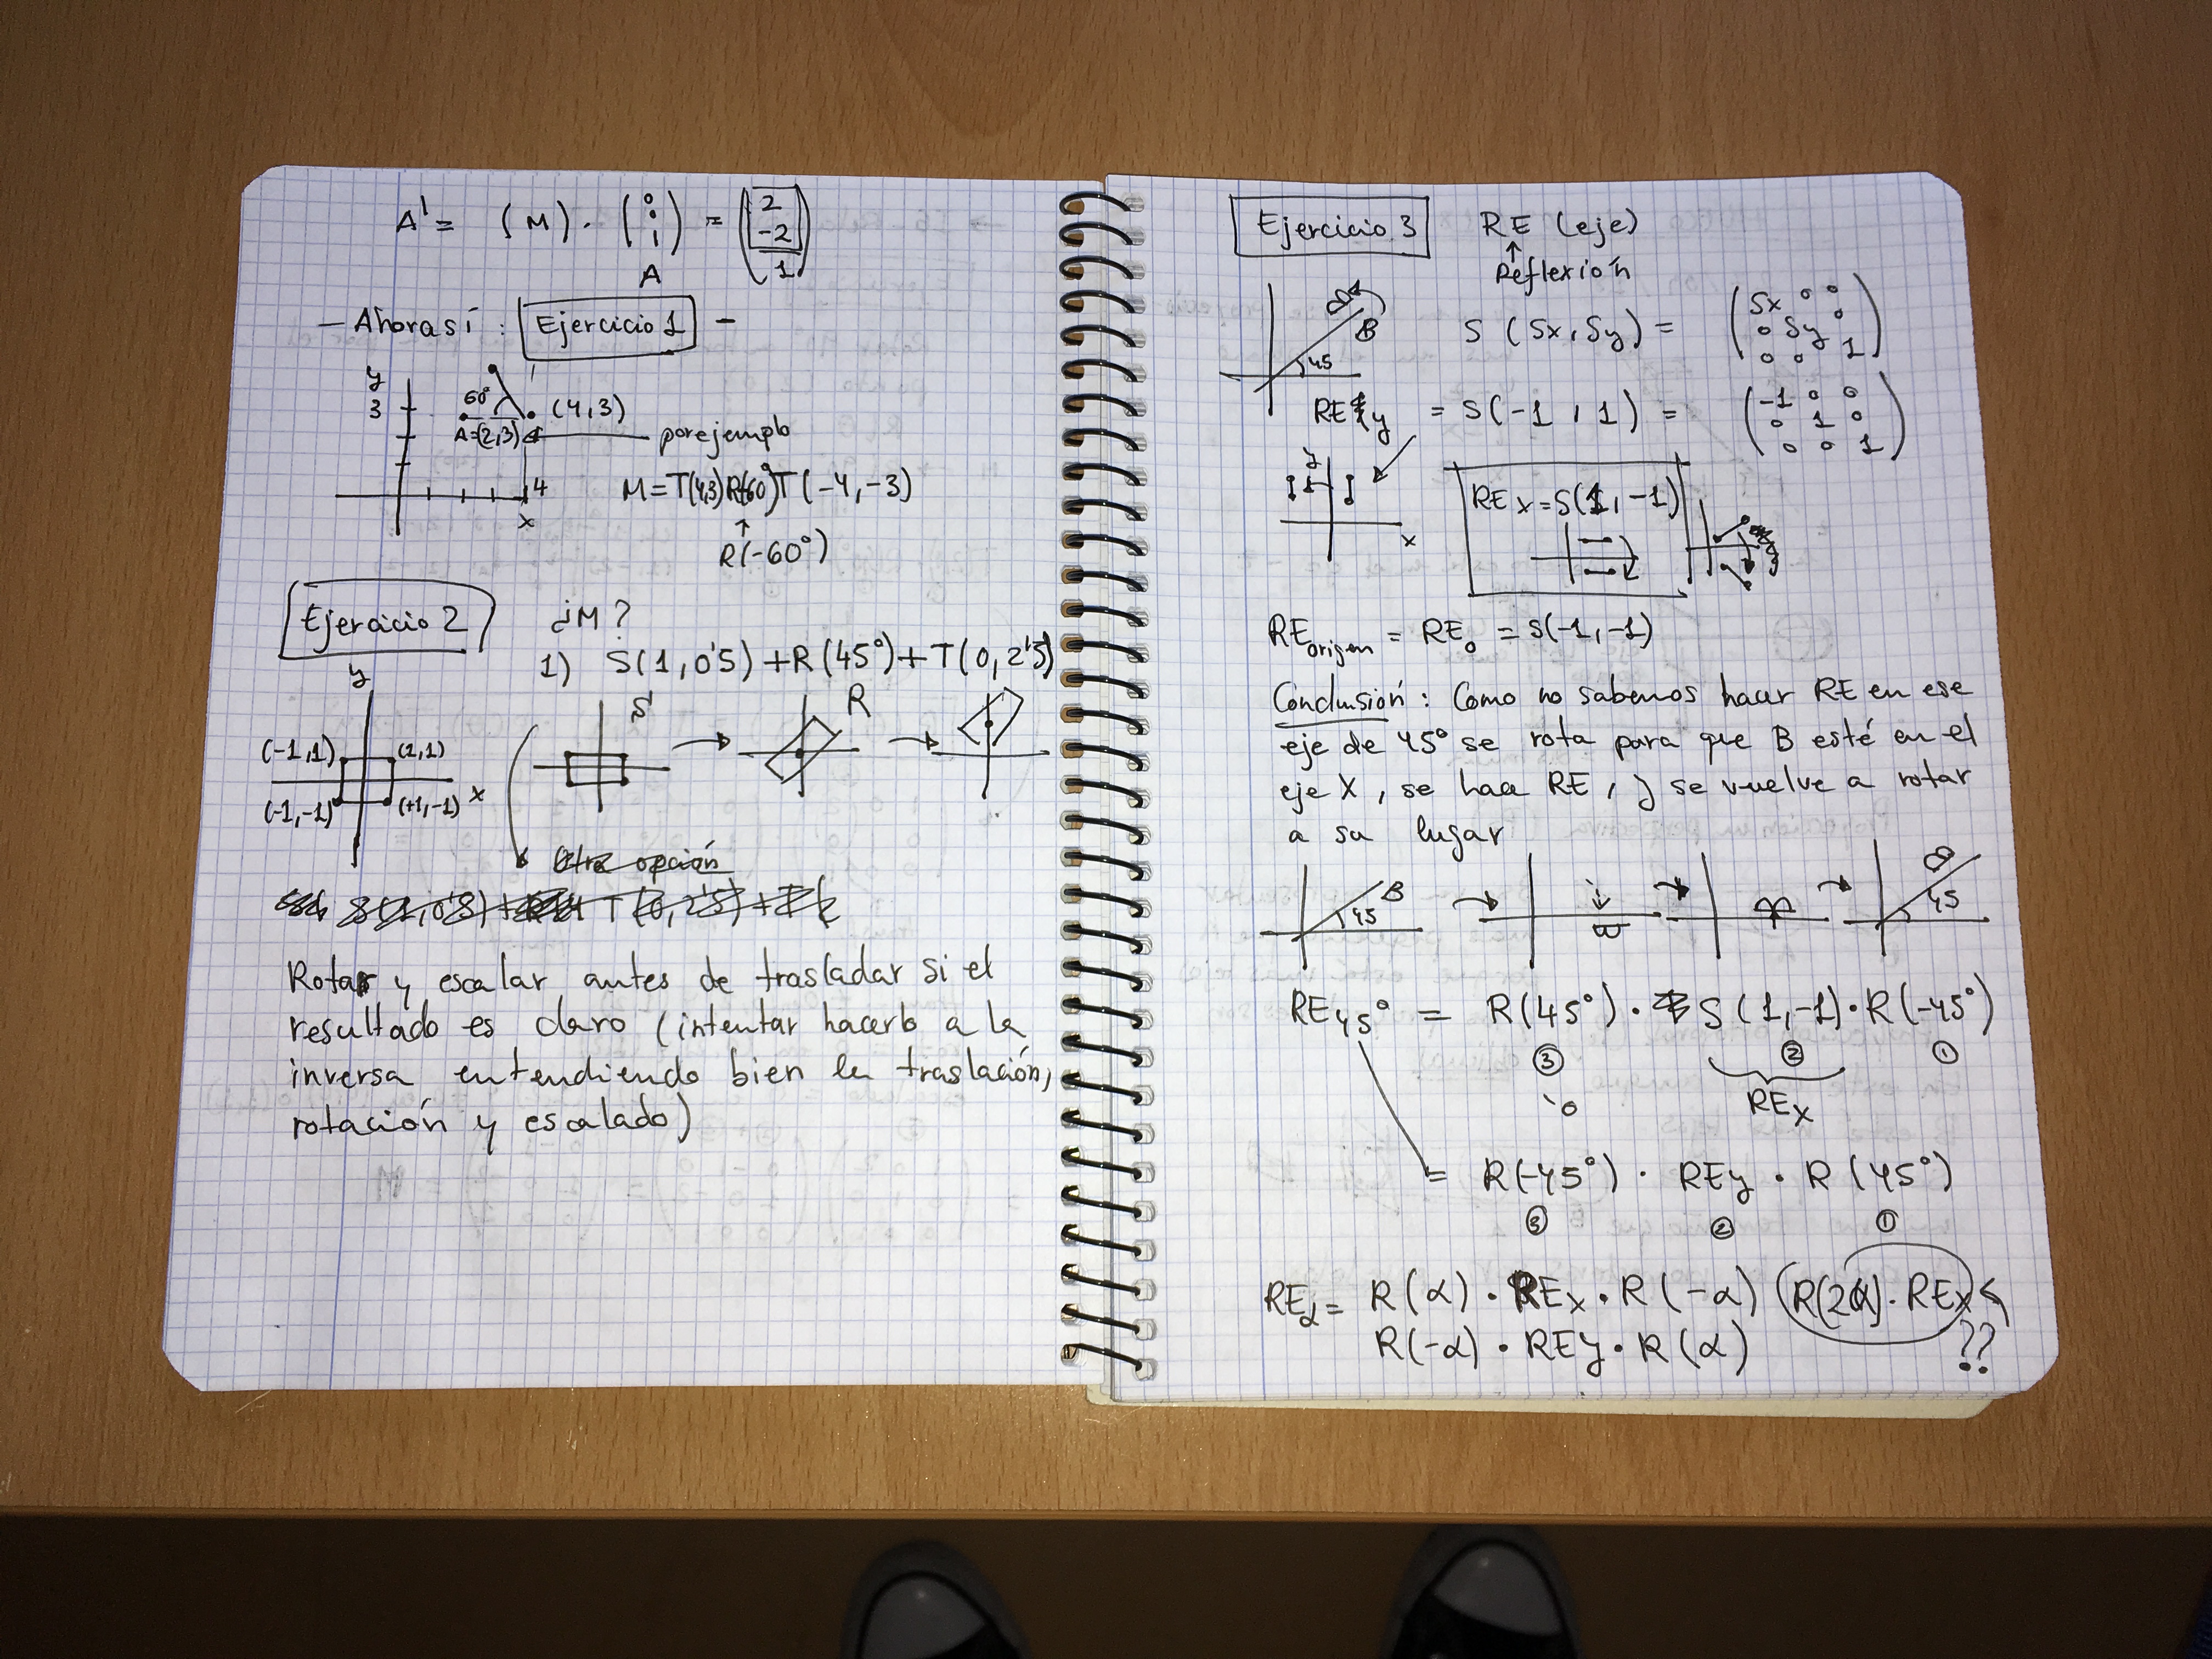 A' = (M) · (0 0 1) = (2 -2 1)
A
- Ahora sí: Ejercicio 1 -
y
3
60°
A=(2,3)
(4,3)
por ejemplo
4
x
M=T(4,3)R(60°)T(-4,-3)
↑
R(-60°)
Ejercicio 2
¿M?
1) S(1,0'5)+R(45°)+T(0,2'5)
y
(-1,1)
(1,1)
(-1,-1)
(+1,-1)
x
S
R
otra opción
Rotar y escalar antes de trasladar si el
resultado es claro (intentar hacerlo a la
inversa entendiendo bien la traslación,
rotación y escalado)
Ejercicio 3
RE (eje)
↑
Reflexión
45
B
S(Sx,Sy) =
(Sx 0 0
0 Sy 0
0 0 1)
REy = S(-1,1) =
(-1 0 0
0 1 0
0 0 1)
y
x
REx=S(1,-1)
REorigen = REo = S(-1,-1)
Conclusión: Como no sabemos hacer RE en ese
eje de 45° se rota para que B esté en el
eje X, se hace RE, y se vuelve a rotar
a su lugar
45
B
45
RE45° = R(45°) · S(1,-1) · R(-45°)
③ ② ①
REx
= R(-45°) · REy · R(45°)
③ ② ①
REα = R(α) · REx · R(-α) (R(2α) · REx)
R(-α) · REy · R(α)
??